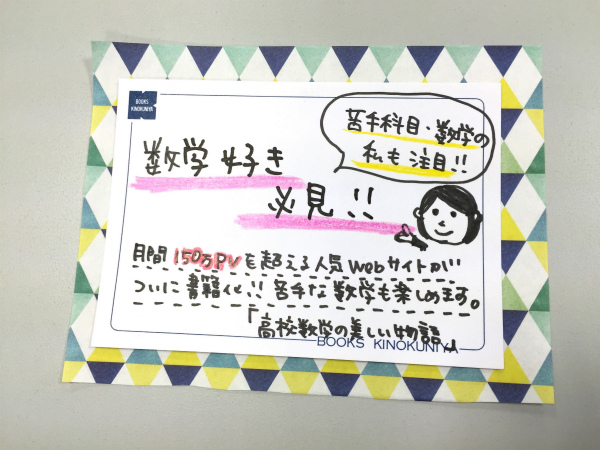 BOOKS
KINOKUNIYA
苦手科目・数学の
私も注目!!
数学好き
必見!!
月間150万PVを超える人気Webサイトが
ついに書籍化!! 苦手な数学も楽しめます。
「高校数学の美しい物語」
BOOKS KINOKUNIYA